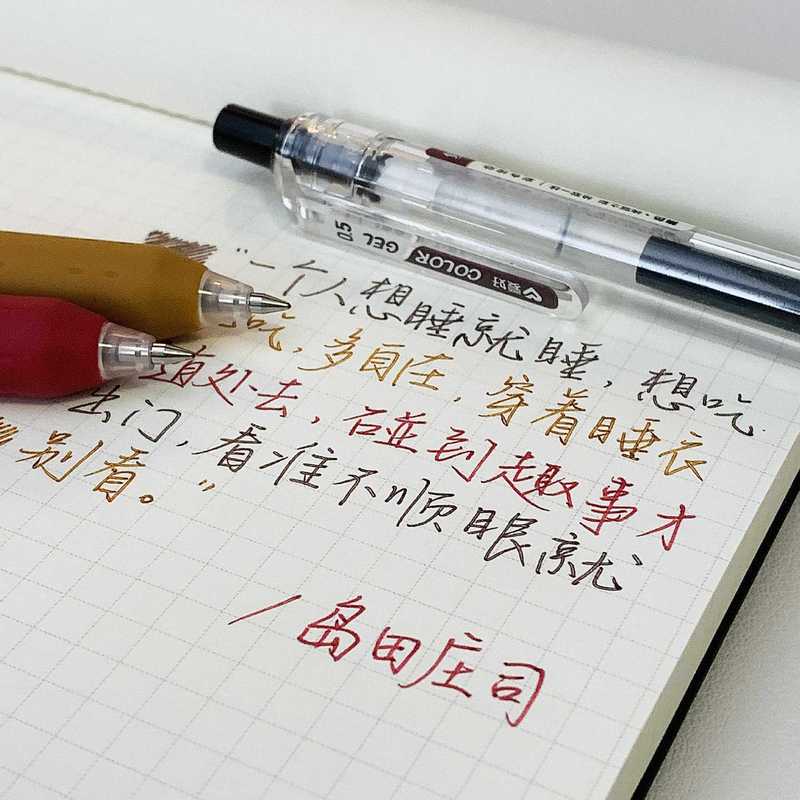 “一个人想睡就睡，想吃
吃，多自在，穿着睡衣
处去，碰到趣事才
出门，看准不顺眼就
别看。”
/岛田庄司
爱好 COLOR GEL 0.5